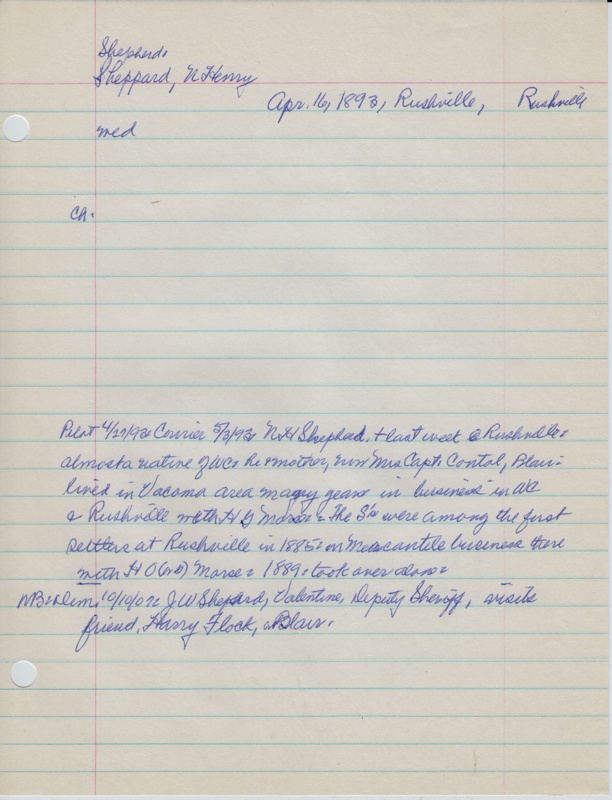 Shepherd
Sheppard, N Henry
Apr. 16, 1893, Rushville, Rushville
med
Ch.
Pilot 4/27/93 Courier 5/3/93 N H Shepherd, + last week @ Rushville.
almost a native of WC. He + mother, now Mrs Capt. Contal, Blair.
lived in Vacoma area many years in business in
& Rushville with H Morse. The S's were among the first
settlers at Rushville in 1885 in Mercantile business there
with H O (or) Morse. 1889. took over alone.
10/10/02 J W Shepard, Valentine, Deputy Sheriff, visits
friend, Harry Flock, Blair.